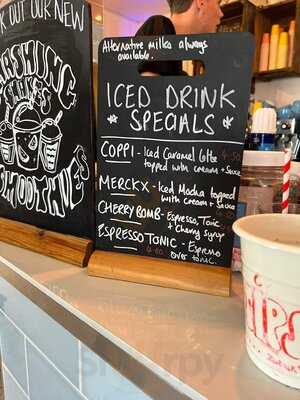 CK OUT OUR NEW
SHAKES
SMOOTHIES
Alternative milks always
available.
ICED DRINK
SPECIALS
COPPI - Iced Caramel latte 4.50
topped with cream + Sauce
MERCKX - Iced Mocha topped
with cream + Sauce
CHERRY BOMB - Espresso, Tonic
+ Cherry syrup
ESPRESSO TONIC - Espresso
over tonic.